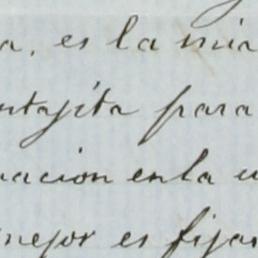 a. es la mia
ntajita para
nacion en la u
mejor es fijar